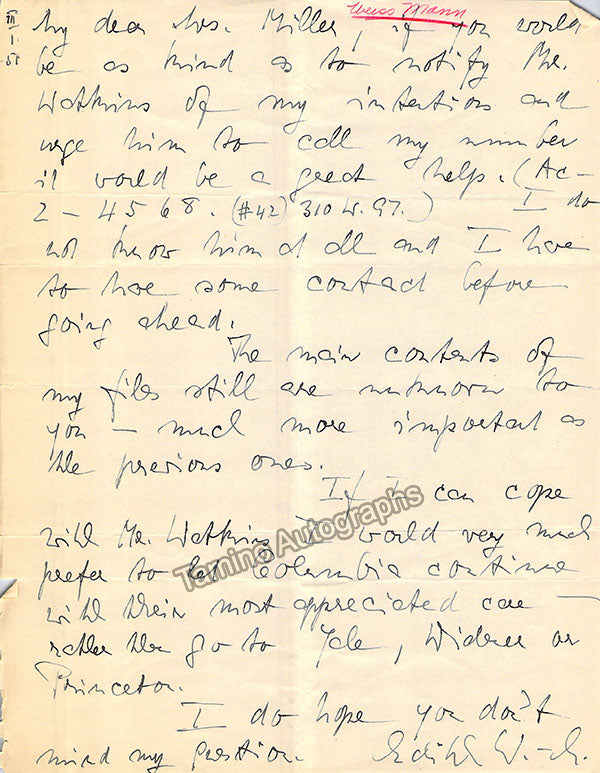 Weiss Mann
III
1.
58
My dear Mrs. Miller, if you would
be as kind as to notify Mr.
Watkins of my intentions and
urge him to call my number
it would be a great help. (Ac-
2 - 4568. (#42) 310 W. 97.) I do
not know him at all and I have
to have some contact before
going ahead.
The main contents of
my files still are unknown to
you — much more important as
the previous ones.
If I can cope
with Mr. Watkins I would very much
prefer to let Columbia continue
with their most appreciated care —
rather than go to Yale, Widener or
Princeton.
I do hope you don't
mind my question. Edith W.-
Tamino Autographs